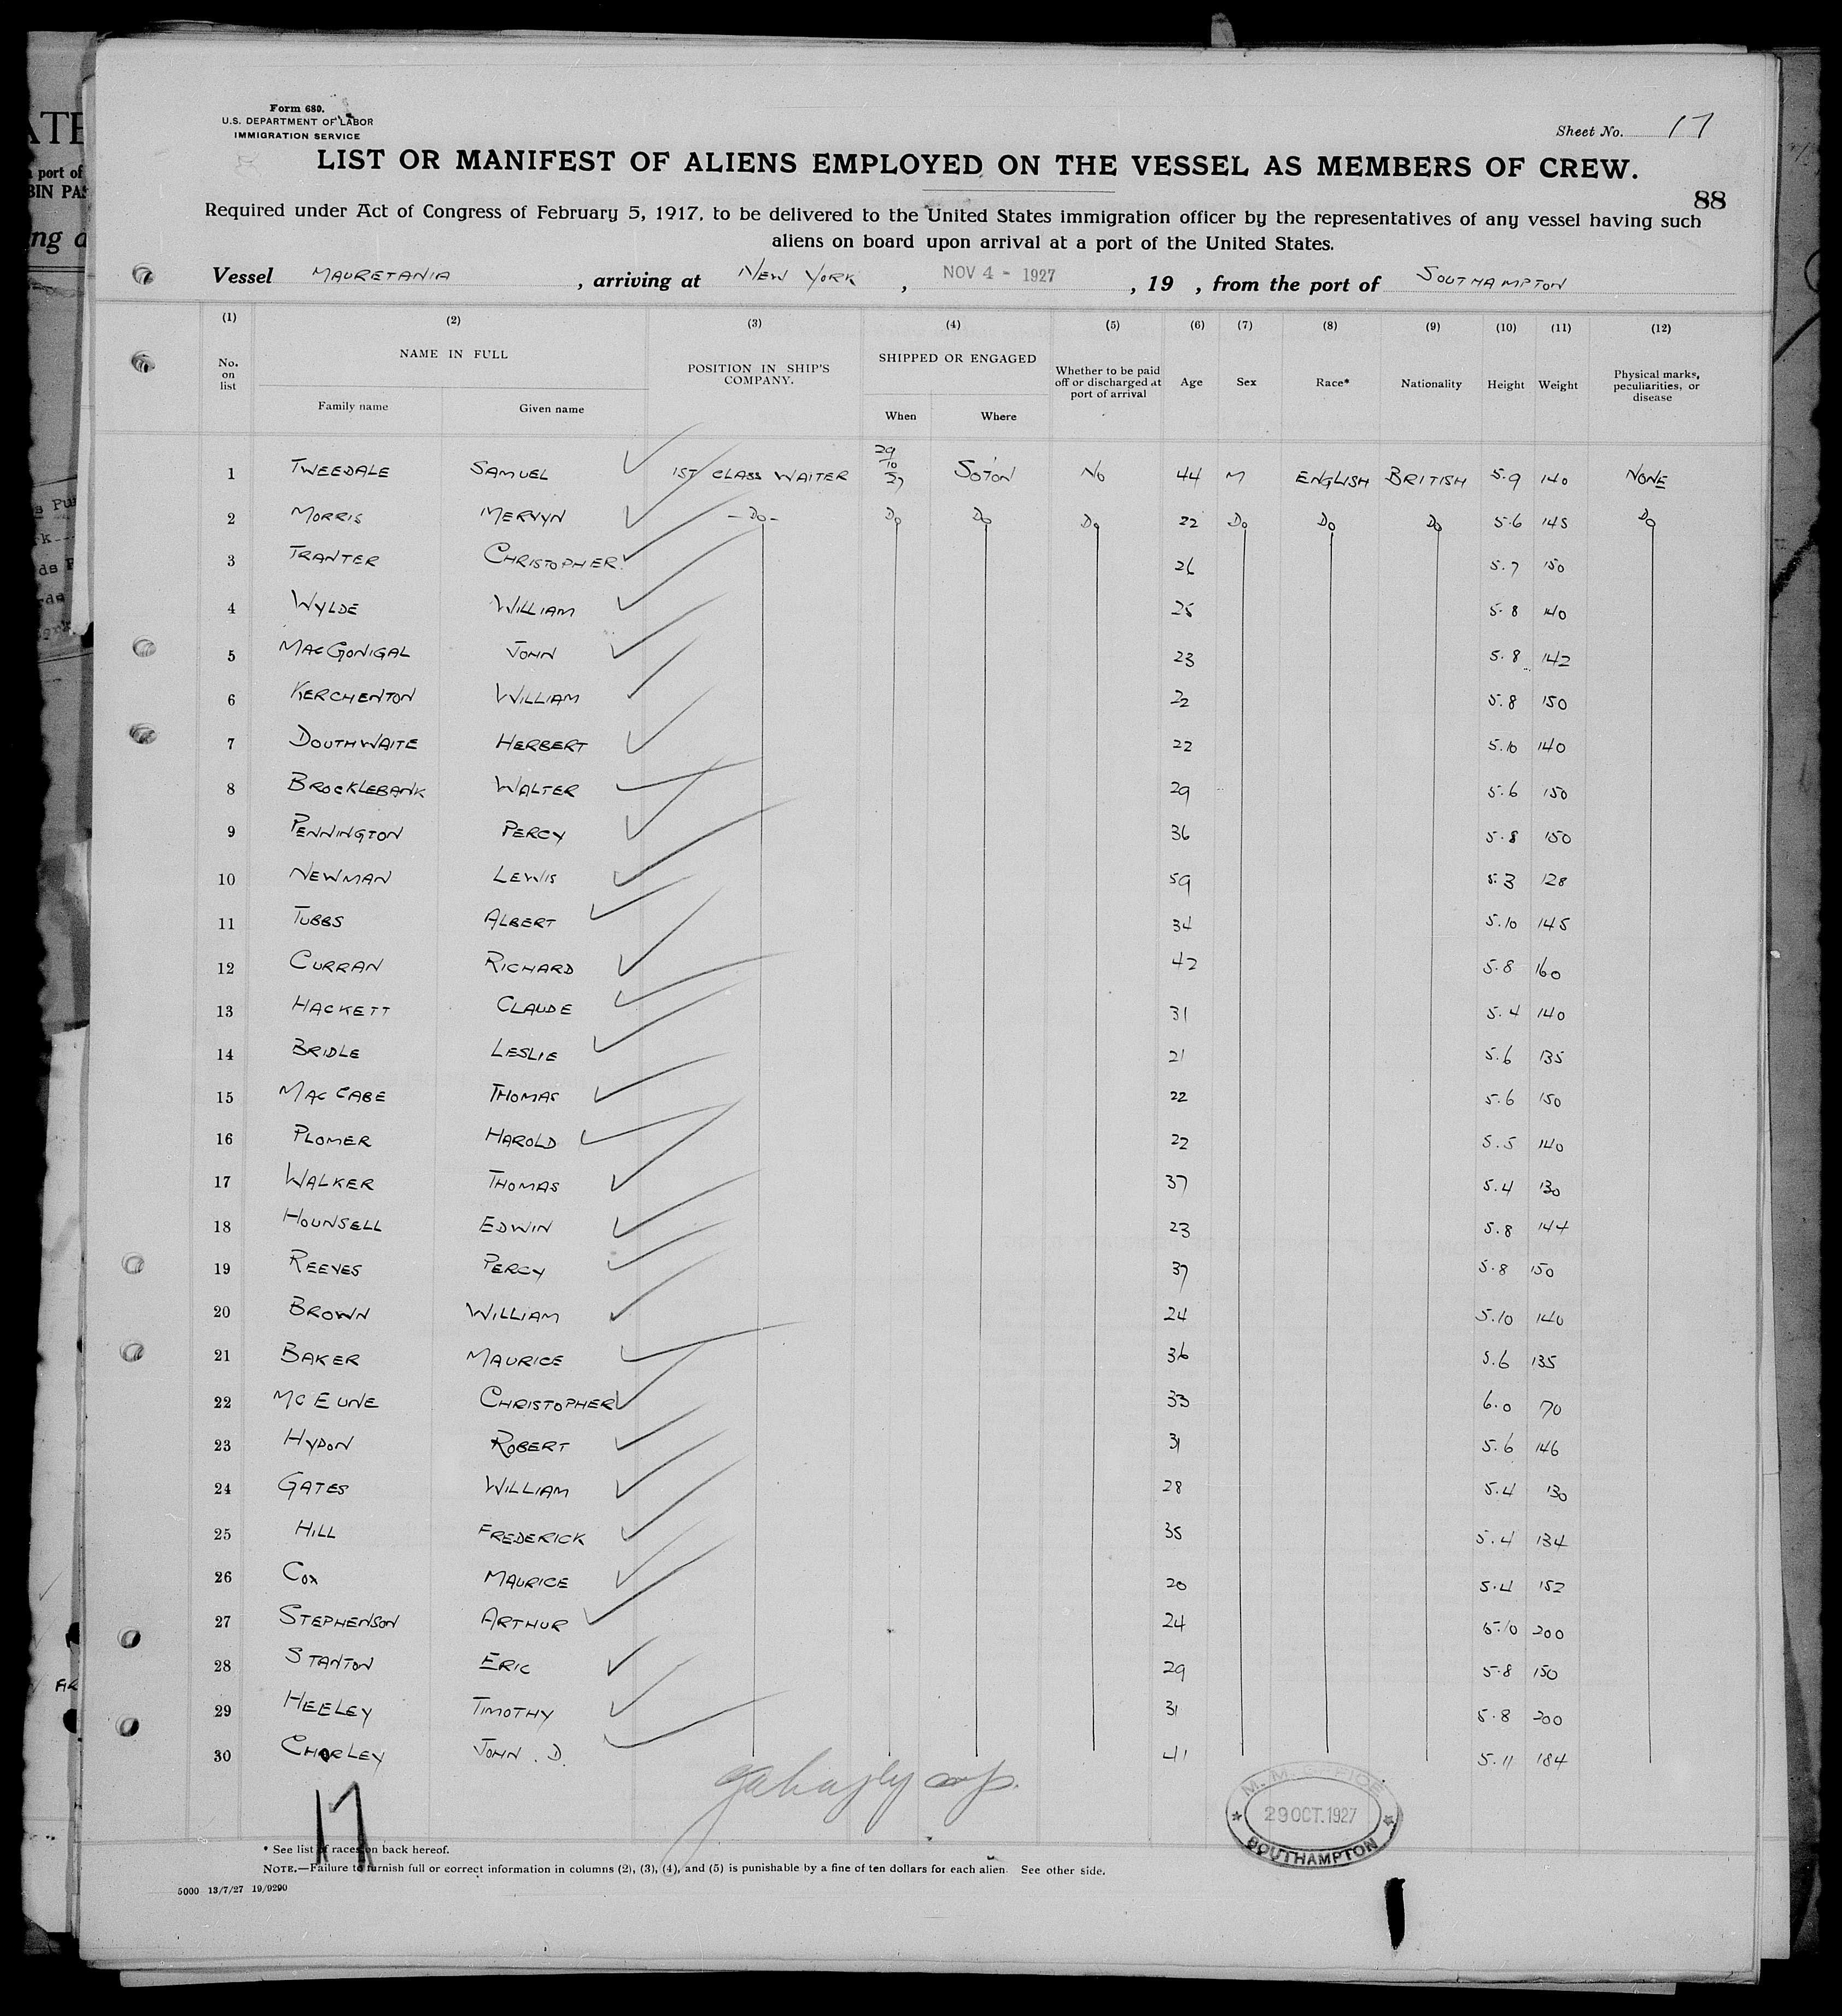 Form 680.
U.S. DEPARTMENT OF LABOR
IMMIGRATION SERVICE
Sheet No. 17
LIST OR MANIFEST OF ALIENS EMPLOYED ON THE VESSEL AS MEMBERS OF CREW.
88
Required under Act of Congress of February 5, 1917, to be delivered to the United States immigration officer by the representatives of any vessel having such
aliens on board upon arrival at a port of the United States.
Vessel MAURETANIA , arriving at NEW YORK , NOV 4 - 1927 , 19 , from the port of SOUTHAMPTON
(1) (2) (3) (4) (5) (6) (7) (8) (9) (10) (11) (12)
No. on list NAME IN FULL Family name Given name POSITION IN SHIP'S COMPANY. SHIPPED OR ENGAGED When Where Whether to be paid off or discharged at port of arrival Age Sex Race* Nationality Height Weight Physical marks, peculiarities, or disease
1 TWEEDALE SAMUEL 1ST CLASS WAITER 29/10/27 SO'TON NO 44 M ENGLISH BRITISH 5.9 140 NONE
2 MORRIS MERVYN - DO - DO DO DO 22 DO DO DO 5.6 145 DO
3 TRANTER CHRISTOPHER 26 5.7 150
4 WYLDE WILLIAM 25 5.8 140
5 MACGONIGAL JOHN 23 5.8 142
6 KERCHENTON WILLIAM 22 5.8 150
7 DOUTHWAITE HERBERT 22 5.10 140
8 BROCKLEBANK WALTER 29 5.6 150
9 PENNINGTON PERCY 36 5.8 150
10 NEWMAN LEWIS 59 5.3 128
11 TUBBS ALBERT 34 5.10 145
12 CURRAN RICHARD 42 5.8 160
13 HACKETT CLAUDE 31 5.4 140
14 BRIDLE LESLIE 21 5.6 135
15 MAC CABE THOMAS 22 5.6 150
16 PLOMER HAROLD 22 5.5 140
17 WALKER THOMAS 37 5.4 130
18 HOUNSELL EDWIN 23 5.8 144
19 REEVES PERCY 37 5.8 150
20 BROWN WILLIAM 24 5.10 140
21 BAKER MAURICE 36 5.6 135
22 MC EUNE CHRISTOPHER 33 6.0 70
23 HYDON ROBERT 31 5.6 146
24 GATES WILLIAM 28 5.4 130
25 HILL FREDERICK 35 5.4 134
26 COX MAURICE 20 5.4 152
27 STEPHENSON ARTHUR 24 5.10 200
28 STANTON ERIC 29 5.8 150
29 HEELEY TIMOTHY 31 5.8 200
30 CHORLEY JOHN . D. 41 5.11 184
17
29 OCT. 1927
SOUTHAMPTON
* See list of races on back hereof.
NOTE.—Failure to furnish full or correct information in columns (2), (3), (4), and (5) is punishable by a fine of ten dollars for each alien. See other side.
5000 13/7/27 19/9290